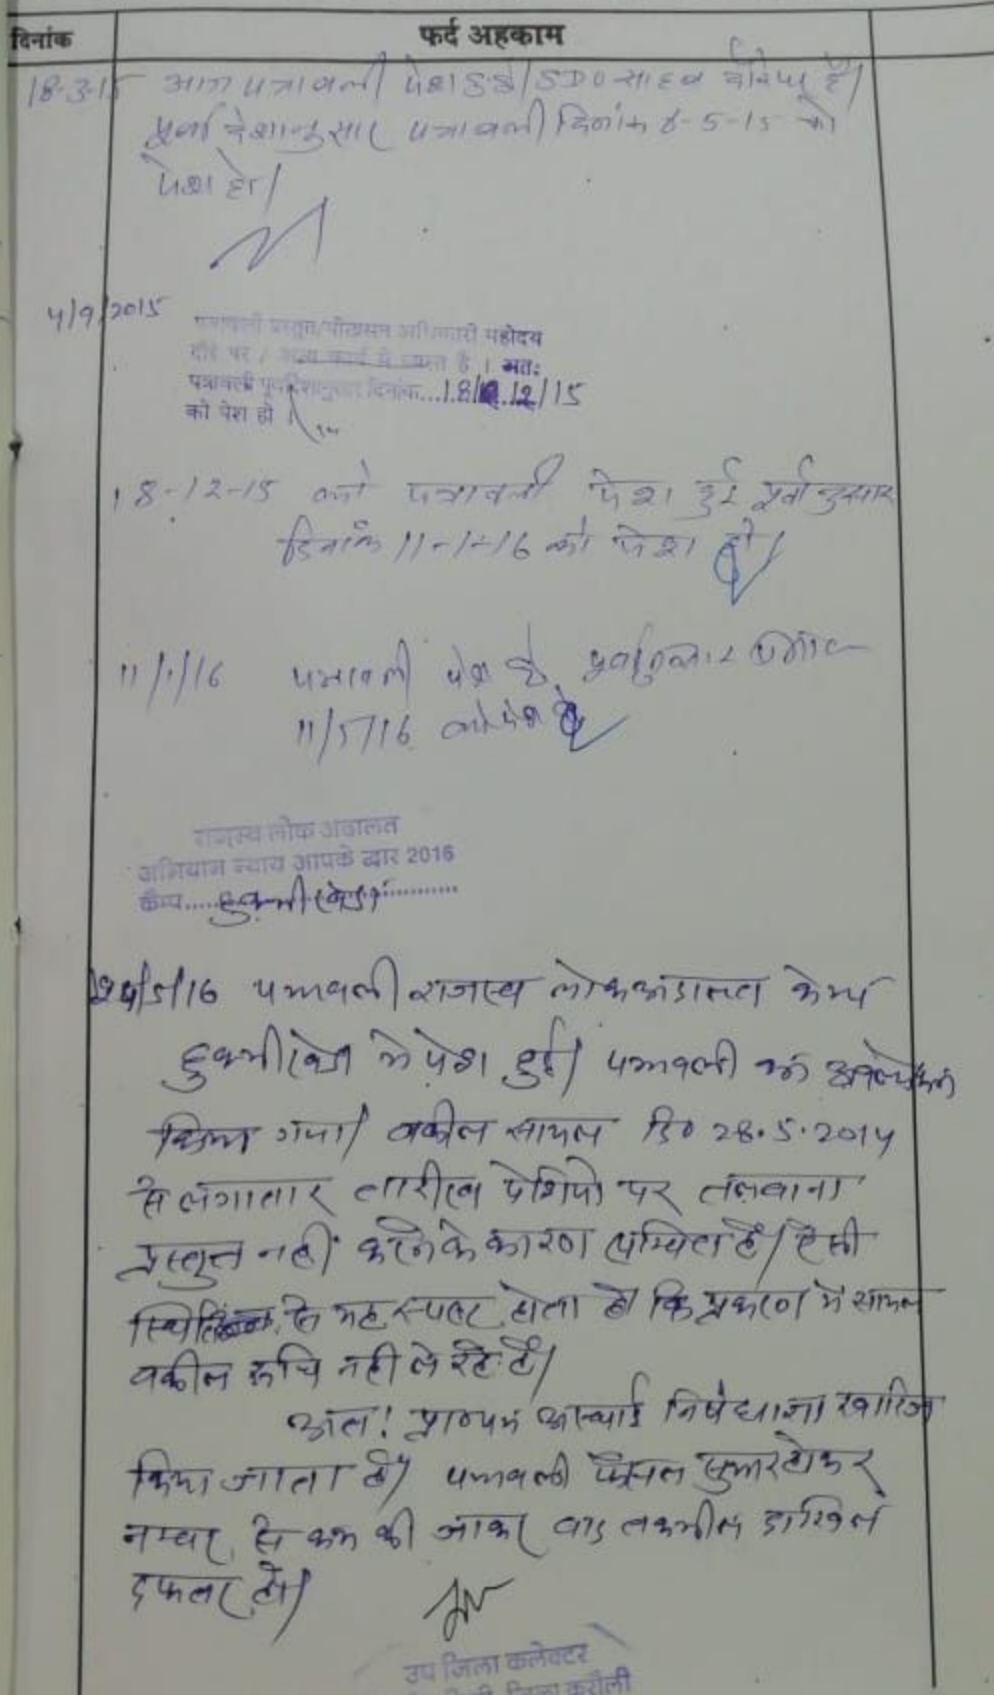 दिनांक
फर्द अहकाम
18-3-15 आज पत्रावली पेश हुई। SDO साहब दौरे पर है।
पूर्वादेशानुसार पत्रावली दिनांक 6-5-15 को
पेश हो।
4/9/2015
पत्रावली प्रस्तुत/पीठासन अधिकारी महोदय
दौरे पर / अन्य कार्य में व्यस्त है । अतः
पत्रावली पूर्वादेशानुसार दिनांक...18/12/15
को पेश हो ।
18-12-15 को पत्रावली पेश हुई पूर्वानुसार
दिनांक 11-1-16 को पेश हो।
11/1/16 पत्रावली पेश है पूर्वानुसार दिनांक
11/5/16 को पेश हो
राजस्व लोक अदालत
अभियान न्याय आपके द्वार 2016
कैम्प.....हुक्मीखेडा
24/5/16 पत्रावली राजस्व लोकअदालत केम्प
हुक्मीखेडा मे पेश हुई। पत्रावली का अवलोकन
किया गया। वकील सायल दि० 28.5.2014
से लगातार तारीख पेशियो पर तलवाना
प्रस्तुत नही करने के कारण लम्बित है। ऐसी
स्थिति से यह स्पष्ट होता है कि प्रकरण मे सायल
वकील रूचि नही ले रहे है।
अतः प्रा०पत्र अस्थाई निषेधाज्ञा खारिज
किया जाता है। पत्रावली फैसल शुमार होकर
नम्बर से कम की जाकर बाद तकमील दाखिल
दफ्तर हो।
उप जिला कलेक्टर
जिला करौली